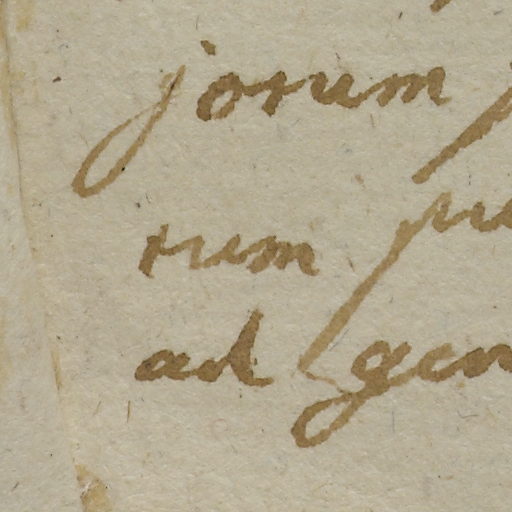 jorum
rum
ad gen